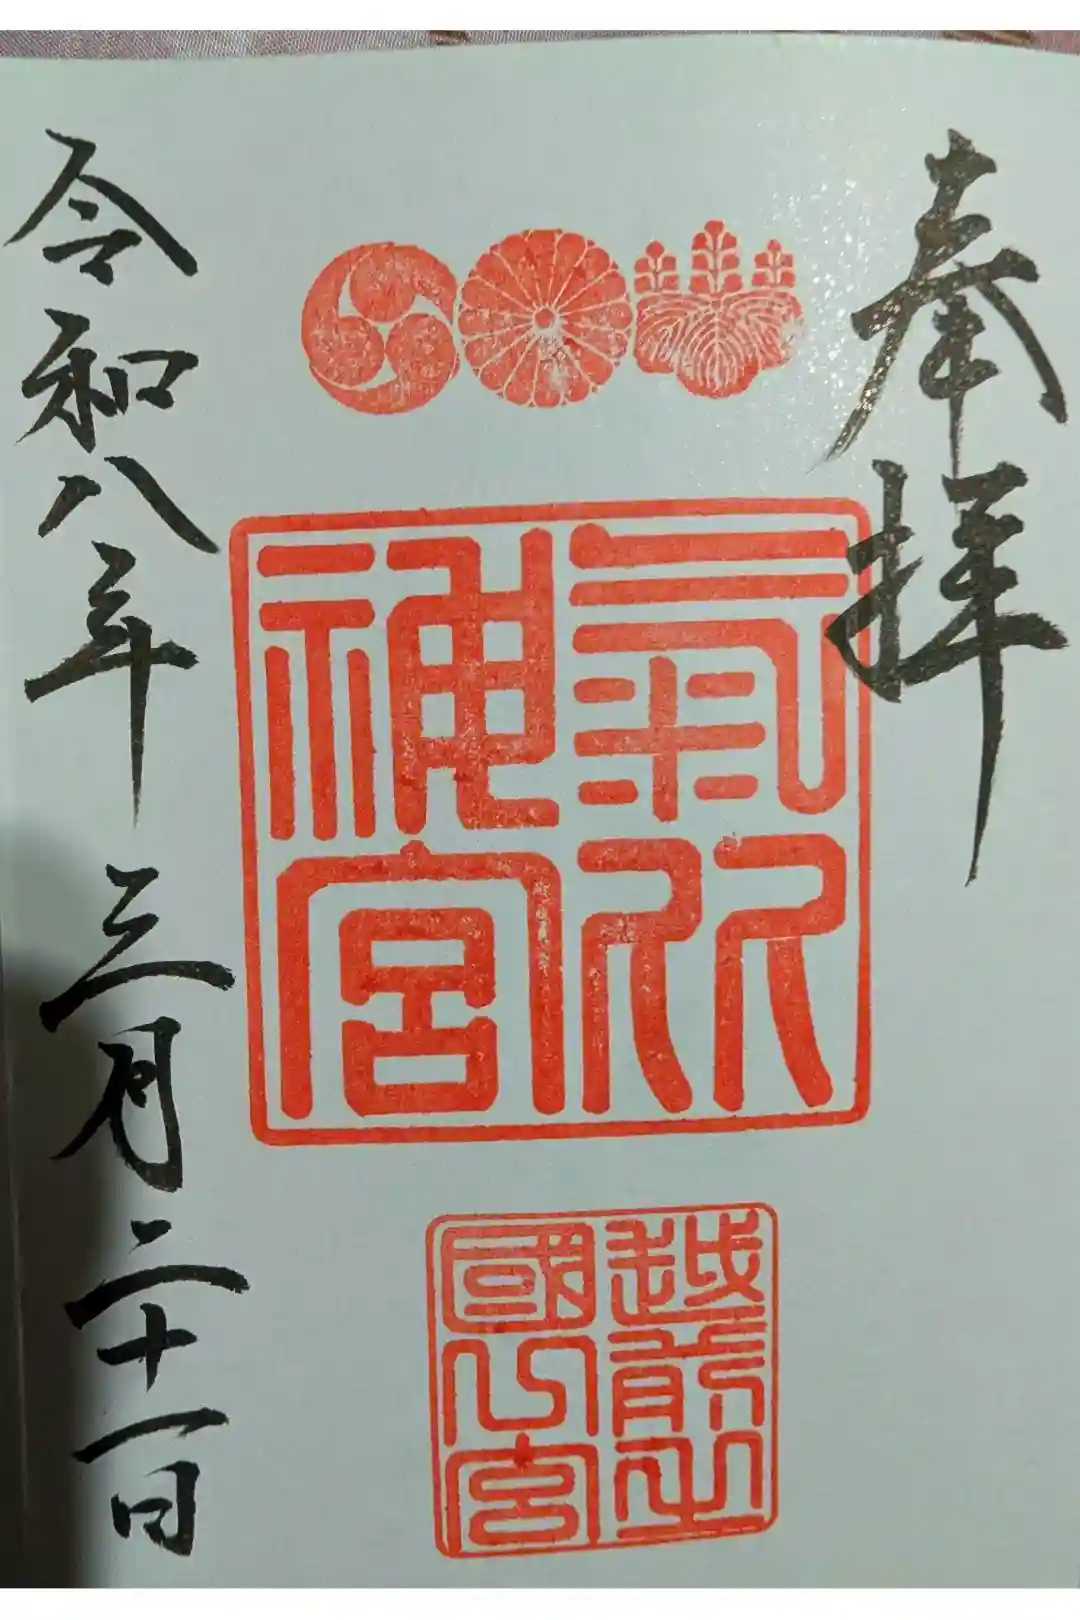 奉拝
氣比
神宮
越前之
國宮
令和八年三月二十一日